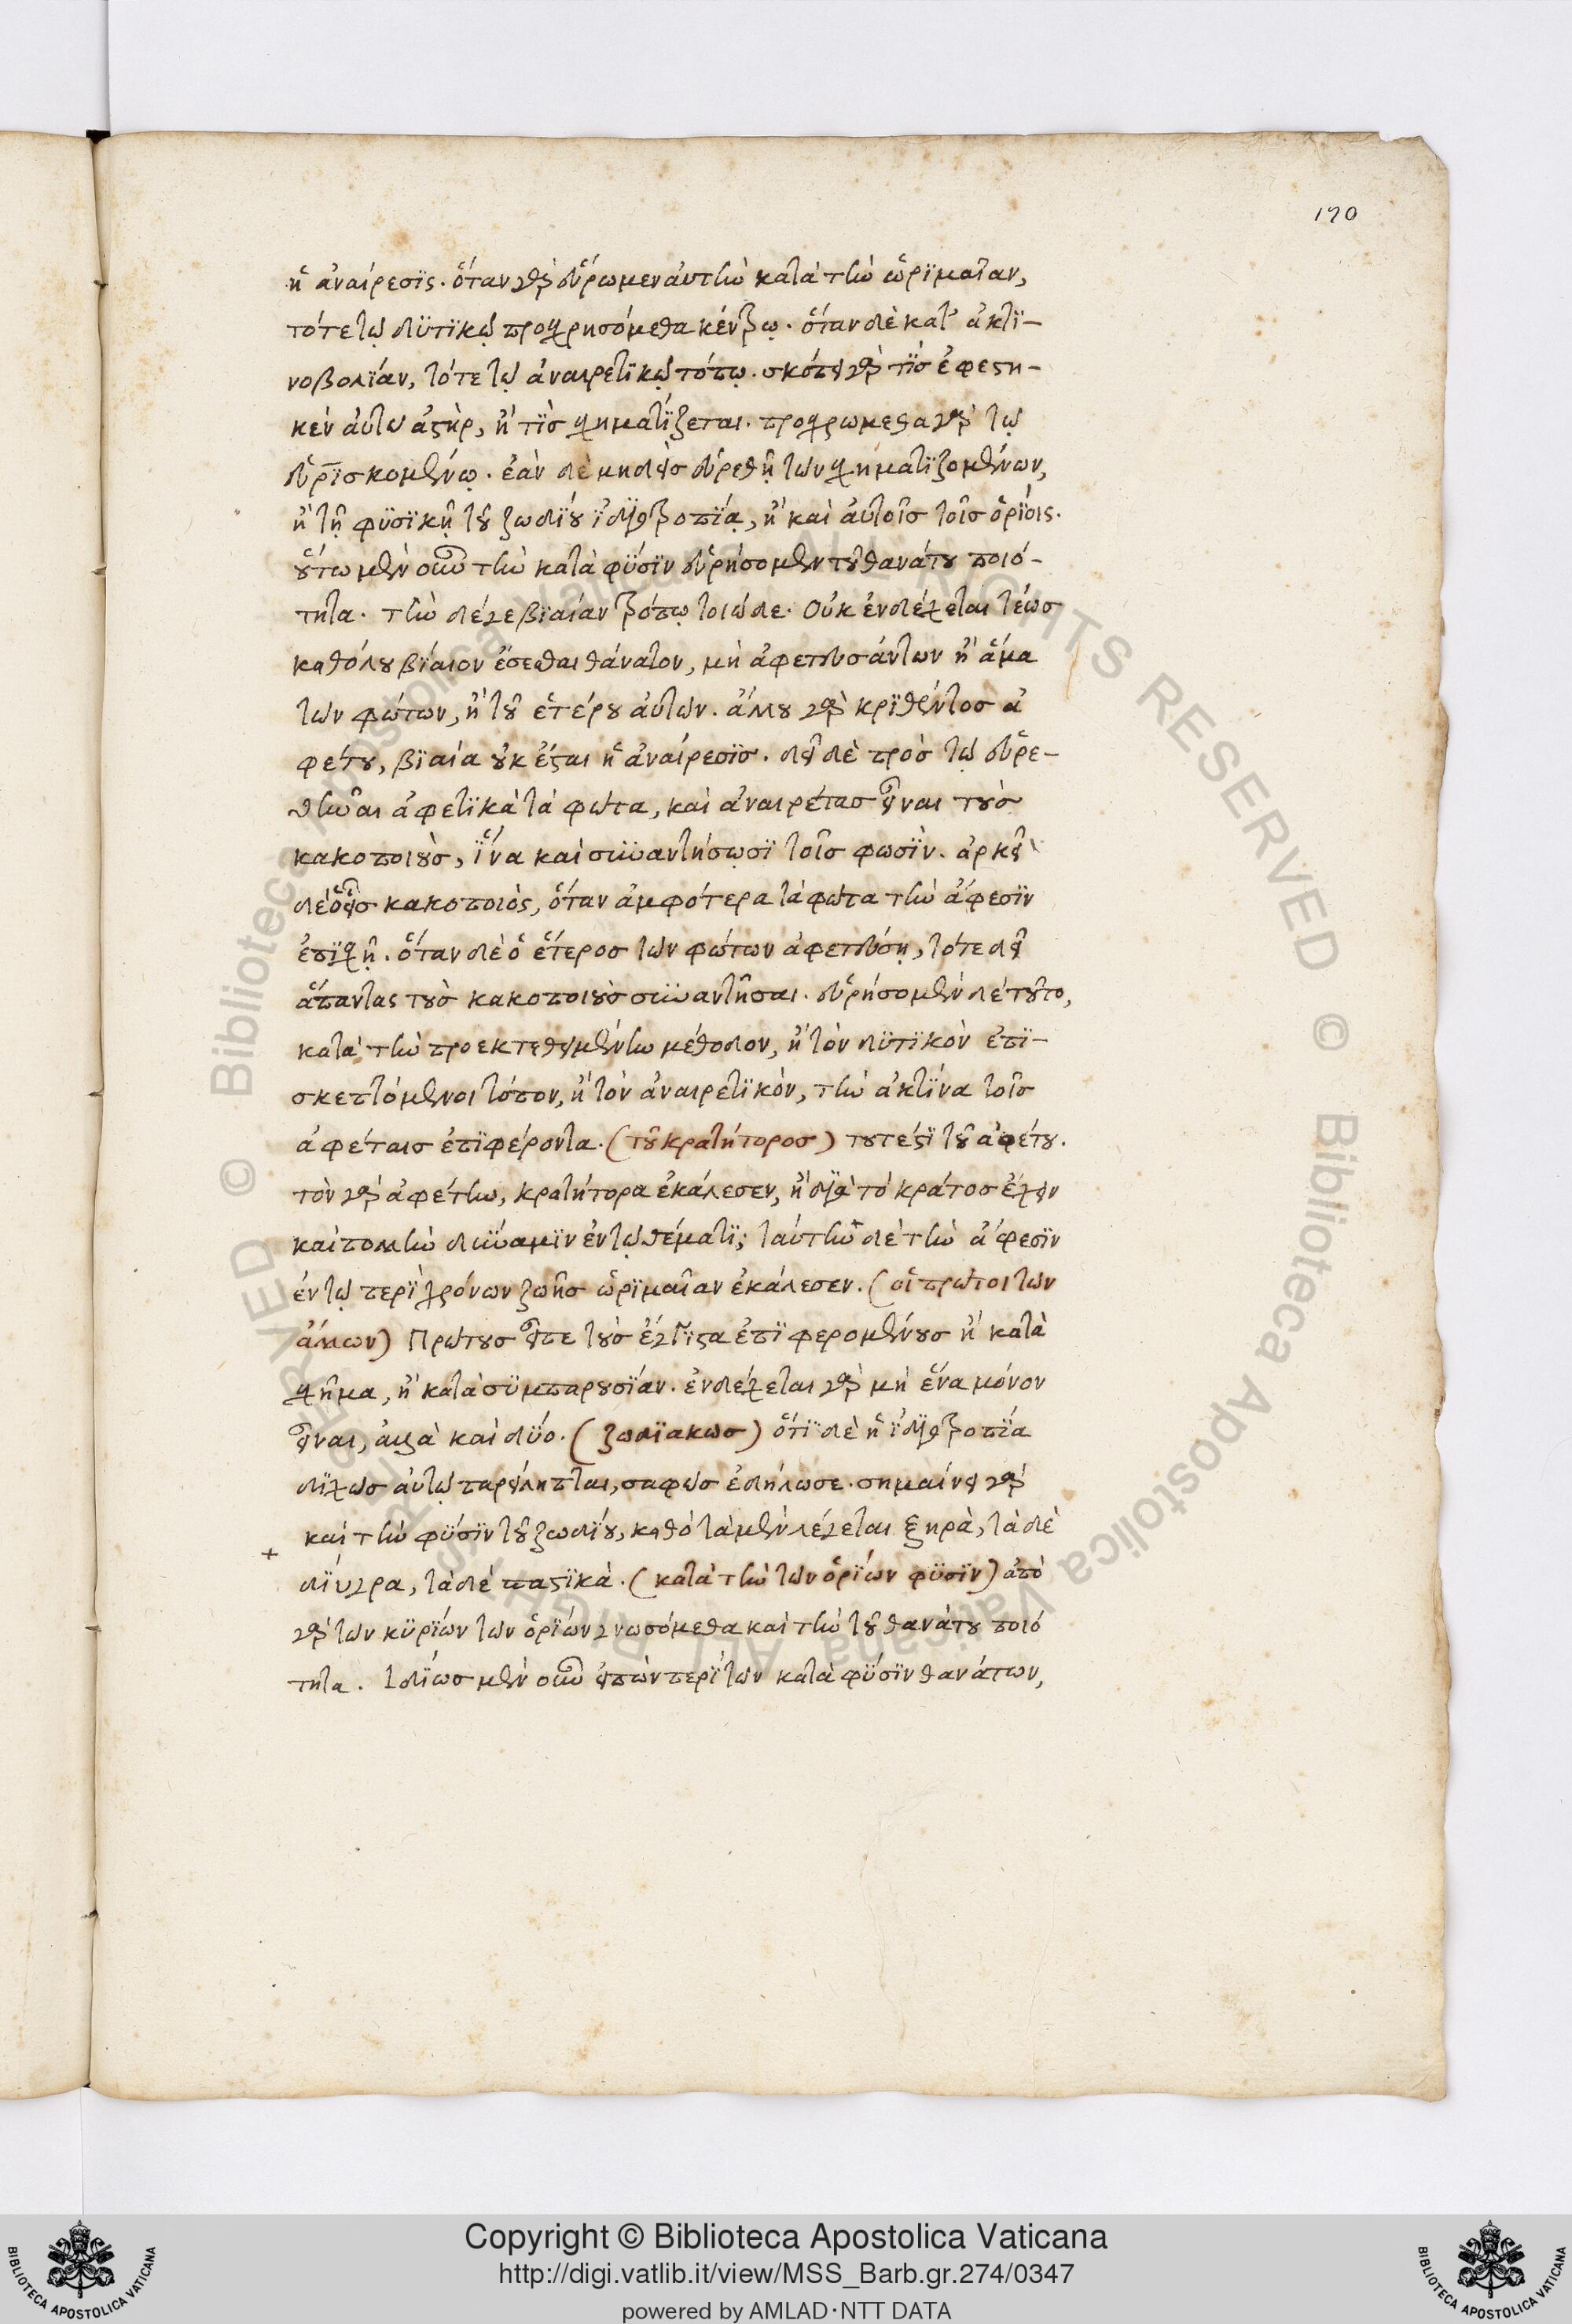 170
ἡ ἀναίρεσϊς. ὅταν γὰρ εὕρωμεν αὐτὴν κατὰ τὴν ὡρϊμαίαν,
τότε τῷ δϋτϊκῷ προσχρησόμεθα κέντρῳ. ὅταν δὲ κατ' ἀκτϊ-
νοβολϊάν, τότε τῷ ἀναιρετϊκῷ τόπῳ. σκόπει γὰρ τϊς ἐφεστη-
κεν αὐτῶ ἀστὴρ, ἢ τϊς σχηματΐζεται. προσχρώμεθα γὰρ τῷ
εὑρϊσκομένῳ. ἐὰν δὲ μηδεὶς εὑρεθῇ τῶν σχηματϊζομένων,
ἢ τῇ φϋσϊκῇ τοῦ ζωδΐου ἰδϊοτροπΐᾳ, ἢ καὶ αὐτοῖς τοῖς ὁρΐοις.
οὕτω μὲν οὖν τὴν κατὰ φϋσϊν εὑρήσομεν τοῦ θανάτου ποιό-
τητα. τὴν δέ γε βϊαίαν τρόπῳ τοιῶδε. Οὐκ ἐνδέχεται τέως
καθόλου βΐαιον ἔσεσθαι θάνατον, μὴ ἀφετευσάντων ἢ ἅμα
τῶν φώτων, ἢ τοῦ ἑτέρου αὐτῶν. ἄλλου γὰρ κρϊθέντος ἀ
φέτου, βϊαία οὐκ ἔσται ἡ ἀναίρεσϊς. δεῖ δὲ πρὸς τῷ εὑρε-
θῆναι ἀφετϊκὰ τὰ φῶτα, καὶ ἀναιρέτας εἶναι τοὺς
κακοποιοὺς, ἵνα καὶ συναντήσωσϊ τοῖς φωσϊν. ἀρκεῖ
δὲ ὁ εἷς κακοποιὸς, ὅταν ἀμφότερα τὰ φῶτα τὴν ἄφεσϊν
ἐπϊσχῇ. ὅταν δὲ ὁ ἕτερος τῶν φώτων ἀφετεύσῃ, τότε δεῖ
ἅπαντας τοὺς κακοποιοὺς συναντῆσαι. εὑρήσομεν δὲ τοῦτο,
κατὰ τὴν προεκτεθειμένην μέθοδον, ἢ τὸν δϋτϊκὸν ἐπϊ-
σκεπτόμενοι τόπον, ἢ τὸν ἀναιρετϊκὸν, τὴν ἀκτΐνα τοῖς
ἀφέταις ἐπϊφέροντα. (τοῦ κρατήτορος) τουτέστϊ τοῦ ἀφέτου.
τὸν γὰρ ἀφέτην, κρατήτορα ἐκάλεσεν, ἢ διὰ τὸ κράτος ἔχειν
καὶ πολλὴν δύναμϊν ἐν τῷ θέματϊ; ταύτην δὲ τὴν ἄφεσϊν
ἐν τῷ περϊ χρόνων ζωῆς ὡρϊμαίαν ἐκάλεσεν. (οἱ πρῶτοι τῶν
ἄλλων) Πρώτους εἶπε τοὺς ἔγγϊστα ἐπϊφερομένους ἢ κατὰ
σχῆμα, ἢ κατὰ σϋμπαρουσΐαν. ἐνδέχεται γὰρ μὴ ἕνα μόνον
εἶναι, ἀλλὰ καὶ δϋο. (ζωδϊακῶς) ὅτϊ δὲ ἡ ἰδϊοτροπΐα
δϊχῶς αὐτῷ παρείληπται, σαφῶς ἐδήλωσε. σημαίνει γὰρ
καὶ τὴν φϋσϊν τοῦ ζωδΐου, καθὸ τὰ μὲν λέγεται ξηρὰ, τὰ δὲ
+
δΐυγρα, τὰ δὲ παστϊκά. (κατὰ τὴν τῶν ὁρΐων φϋσϊν) ἀπὸ
γὰρ τῶν κϋρΐων τῶν ὁρΐων γνωσόμεθα καὶ τὴν τοῦ θανάτου ποιό
τητα. Ἰδΐως μὲν οὖν εἰπὼν περϊ τῶν κατὰ φϋσϊν θανάτων,
Copyright © Biblioteca Apostolica Vaticana
http://digi.vatlib.it/view/MSS_Barb.gr.274/0347
powered by AMLAD·NTT DATA